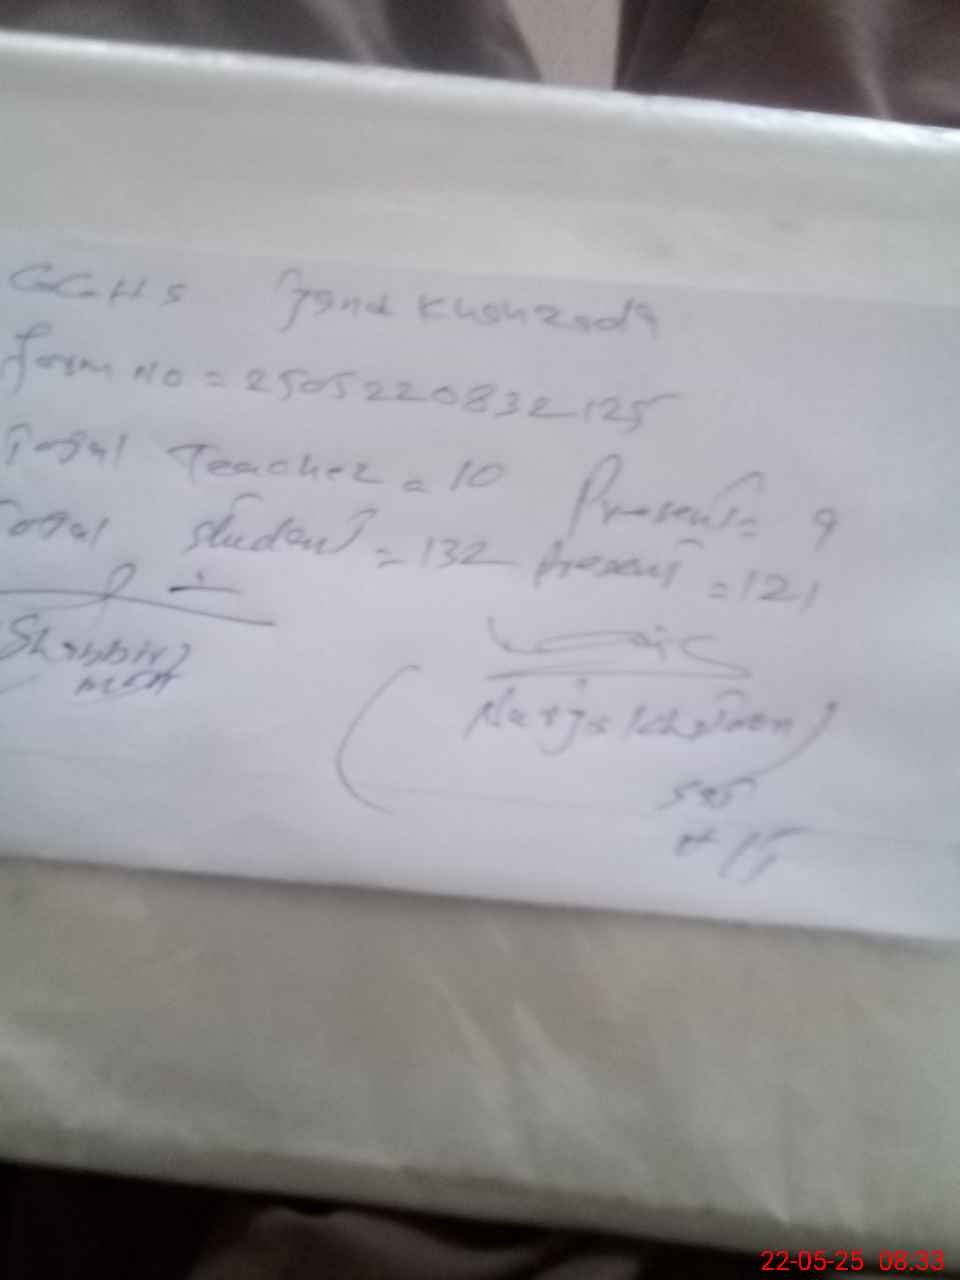 GGHS Jand Khanzada
form No = 2505220832125
Total Teacher = 10 Present = 9
Total student = 132 Present = 121
Shabbir
MEA
(Narjis Khatoon)
22-05-25 08:33